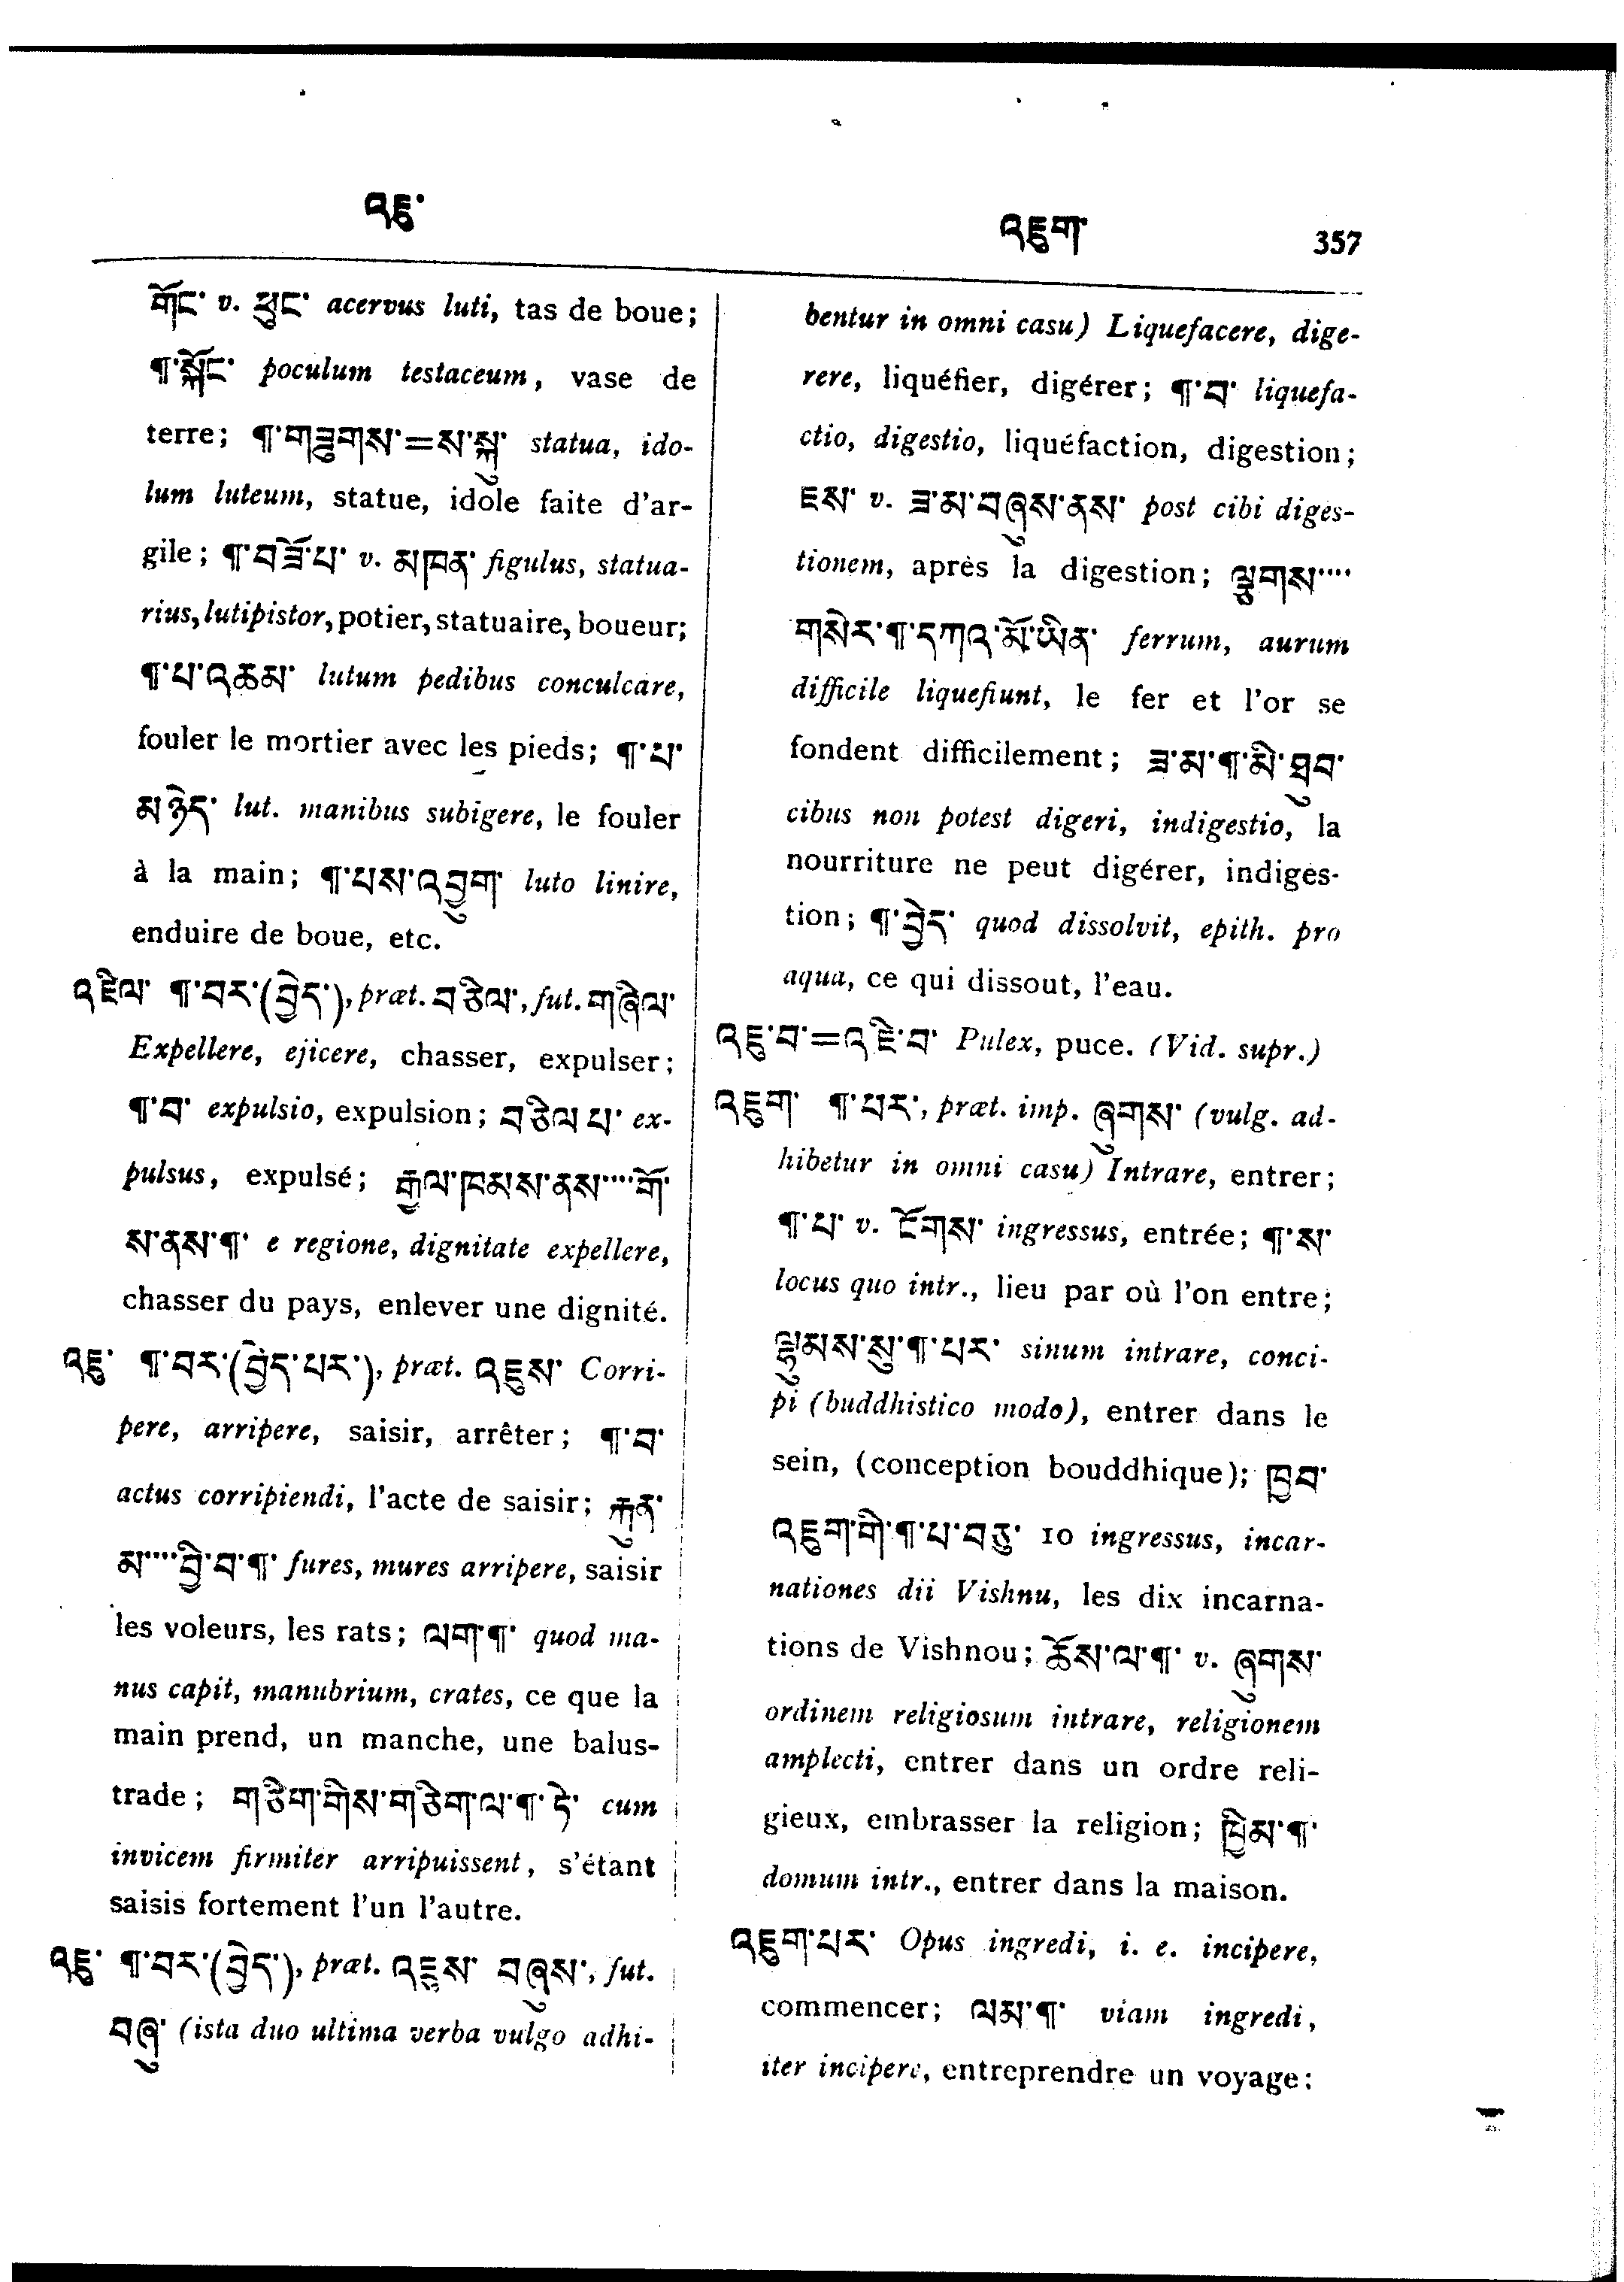 འཇུ་
འཇུག་ 357
གོང་ v. ཕུང་ acervus luti, tas de boue;
¶་སྐོང་ poculum testaceum, vase de
terre; ¶་གཟུགས་=ས་སྐུ་ statua, ido-
lum luteum, statue, idole faite d'ar-
gile; ¶་བཟོ་པ་ v. མཁན་ figulus, statua-
rius, lutipistor, potier, statuaire, boueur;
¶་པ་འཆམ་ lutum pedibus conculcare,
fouler le mortier avec les pieds; ¶་པ་
མཉེད་ lut. manibus subigere, le fouler
à la main; ¶་པས་འབྱུག་ luto linire,
enduire de boue, etc.
འཇིལ་ ¶་བར་(བྱེད་), præt. བཅིལ་, fut. གཞིལ་
Expellere, ejicere, chasser, expulser;
¶་བ་ expulsio, expulsion; བཅིལ པ་ ex-
pulsus, expulsé; རྒྱལ་ཁམས་ནས་....གོ་
ས་ནས་¶་ e regione, dignitate expellere,
chasser du pays, enlever une dignité.
འཇུ་ ¶་བར་(བྱེད་པར་), præt. འཇུས་ Corri-
pere, arripere, saisir, arrêter; ¶་བ་
actus corripiendi, l'acte de saisir; རྐུན་
མ་....བྱི་བ་¶་ fures, mures arripere, saisir
les voleurs, les rats; ལག་¶་ quod ma-
nus capit, manubrium, crates, ce que la
main prend, un manche, une balus-
trade; གཅིག་གིས་གཅིག་ལ་¶་ཏེ་ cum
invicem firmiter arripuissent, s'étant
saisis fortement l'un l'autre.
འཇུ་ ¶་བར་(བྱེད་), præt. འཇུས་ བཞུས་, fut.
བཞུ་ (ista duo ultima verba vulgo adhi-
bentur in omni casu) Liquefacere, dige-
rere, liquéfier, digérer; ¶་བ་ liquefa-
ctio, digestio, liquéfaction, digestion;
ཇས་ v. ཟ་མ་བཞུས་ནས་ post cibi diges-
tionem, après la digestion; ལྕུགས་....
གསེར་¶་དཀའ་མོ་ཡིན་ ferrum, aurum
difficile liquefiunt, le fer et l'or se
fondent difficilement; ཟ་མ་¶་མི་ཐུབ་
cibus non potest digeri, indigestio, la
nourriture ne peut digérer, indiges-
tion; ¶་བྱེད་ quod dissolvit, epith. pro
aqua, ce qui dissout, l'eau.
འཇུ་བ་=འཇི་བ་ Pulex, puce. (Vid. supr.)
འཇུག་ ¶་པར་, præt. imp. ཞུགས་ (vulg. ad-
hibetur in omni casu) Intrare, entrer;
¶་པ་ v. ངོགས་ ingressus, entrée; ¶་ས་
locus quo intr., lieu par où l'on entre;
ལྷུམས་སུ་¶་པར་ sinum intrare, conci-
pi (buddhistico modo), entrer dans le
sein, (conception bouddhique); ཁྱབ་
འཇུག་གི་¶་པ་བཅུ་ 10 ingressus, incar-
nationes dii Vishnu, les dix incarna-
tions de Vishnou; ཆོས་ལ་¶་ v. ཞུགས་
ordinem religiosum intrare, religionem
amplecti, entrer dans un ordre reli-
gieux, embrasser la religion; ཁྱིམ་¶་
domum intr., entrer dans la maison.
འཇུག་པར་ Opus ingredi, i. e. incipere,
commencer; ལམ་¶་ viam ingredi,
iter incipere, entreprendre un voyage;